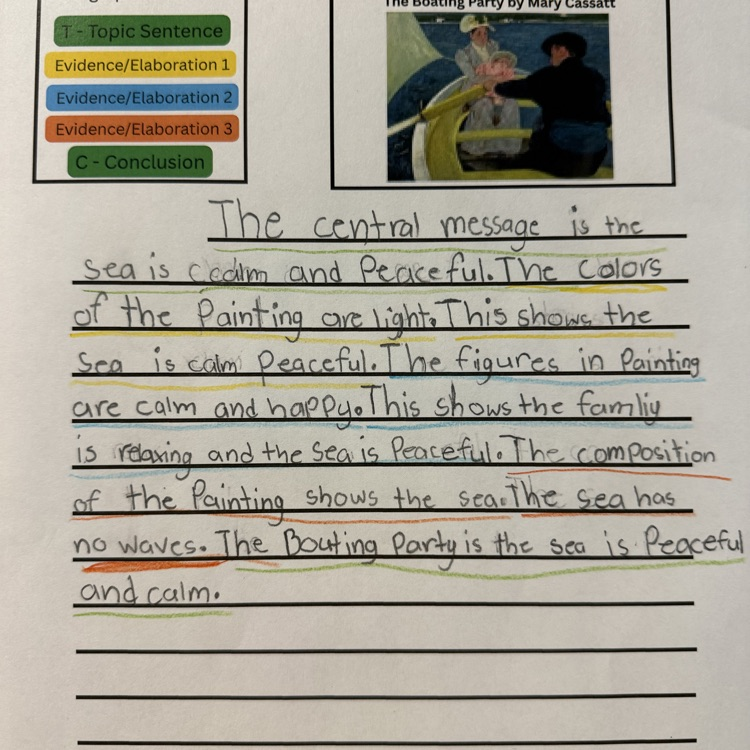 The Boating Party by Mary Cassatt
T - Topic Sentence
Evidence/Elaboration 1
Evidence/Elaboration 2
Evidence/Elaboration 3
C - Conclusion
The central message is the
sea is calm and Peaceful. The Colors
of the Painting are light. This shows the
Sea is calm peaceful. The figures in Painting
are calm and happy. This shows the famliy
is relaxing and the sea is Peaceful. The composition
of the Painting shows the sea. The sea has
no waves. The Bouting Party is the sea is Peaceful
and calm.